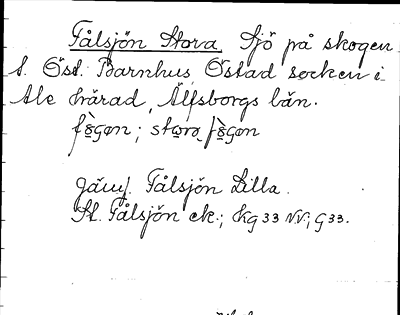 Fålsjön Stora Sjö på skogen
S. Öst. Barnhus, Östad socken i
Ale härad, Älfsborgs län.
Jämf. Fålsjön Lilla.
St. Fålsjön ek.; Kg 33 NV; G 33.